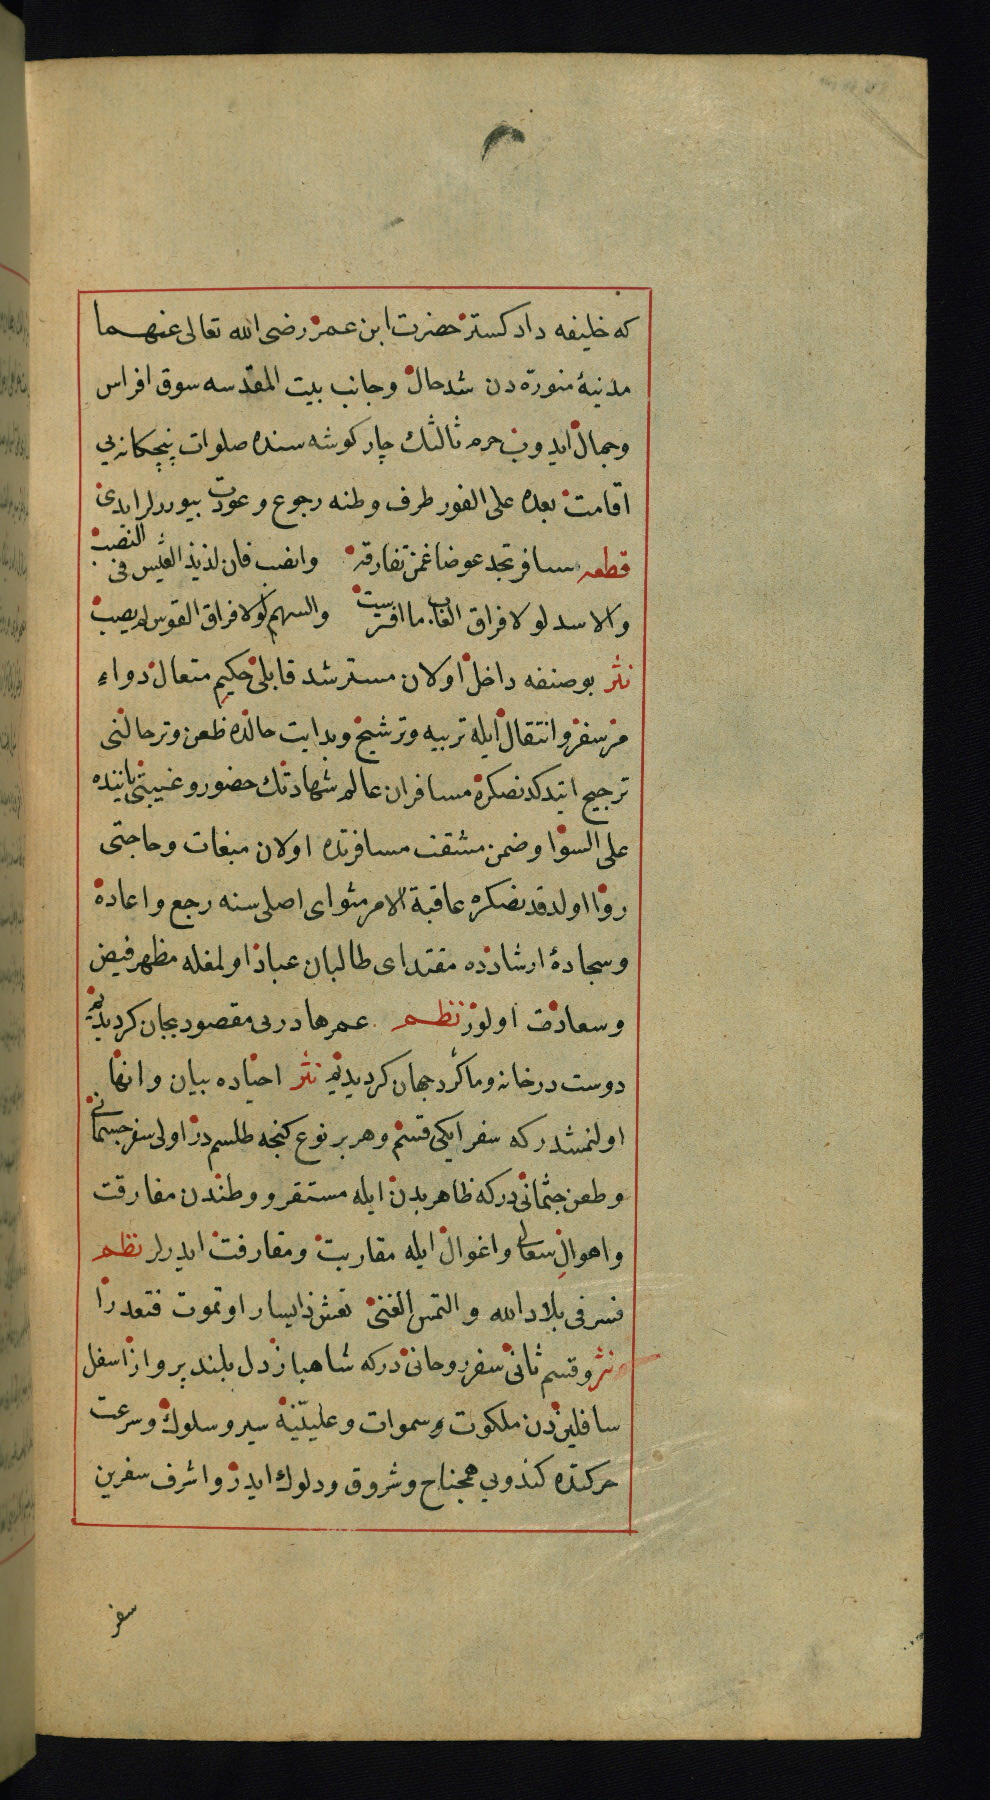 که خلیفه داد کستر حضرت ابن عمر رضی الله تعالی عنهما
مدینهٔ منوره دن شد حال و جانب بیت المقدسه سوق افراس
و جمال ایدوب حرم ثالثك چار کوشه سنده صلوات پنچکانه یی
اقامت بعده علی الفور طرف وطنه رجوع و عودت بیوررلر ایدی
قطعه سافر تجد عوضا عمن تفارقه وانصب فان لذیذ العیش فی النصب
والاسد لولا فراق الغاب ما افترست والسهم لولا فراق القوس لم یصب
نثر بو صنفه داخل اولان مسترشد قابلی حکیم متعال دواء
مر سفر و انتقال ایله تربیه و ترشیح و بدایت حالده ظعن و ترحالنی
ترجیح ایتدکدنصکره مسافران عالم شهادتك حضور و غیبتی یاننده
علی السوا و ضمن مشقت مسافرتده اولان مبغات و حاجتی
روا اولدقدنصکره عاقبة الامر مثوای اصلی سنه رجع و اعاده
و سجادهٔ ارشادده مقتدای طالبان عباد اولمغله مظهر فیض
و سعادت اولور نظم عمرها در پی مقصود بجان کردیدیم
دوست در خانه و ما کرد جهان کردیدیم نثر احیاده بیان و انها
اولنمشدر که سفر ایکی قسم و هر بر نوع کنجه طلسم در اولی سفر جسمانی
و ظعن جثمانی در که ظاهر بدن ایله مستقر و وطندن مفارقت
و اهوال سعالی و اغوال ایله مقاربت و مقارفت ایدرلر نظم
فسر فی بلاد الله والتمس الغنی تعش ذا یسار او تموت فتعذرا
نثر و قسم ثانی سفر روحانی در که شاهباز دل بلند پرواز اسفل
سافلیندن ملکوت و سموات و علیینه سیر و سلوك و سرعت
حرکتده کندویی همجناح و شروق و دلوك ایدر و اشرف سفرین
سفر